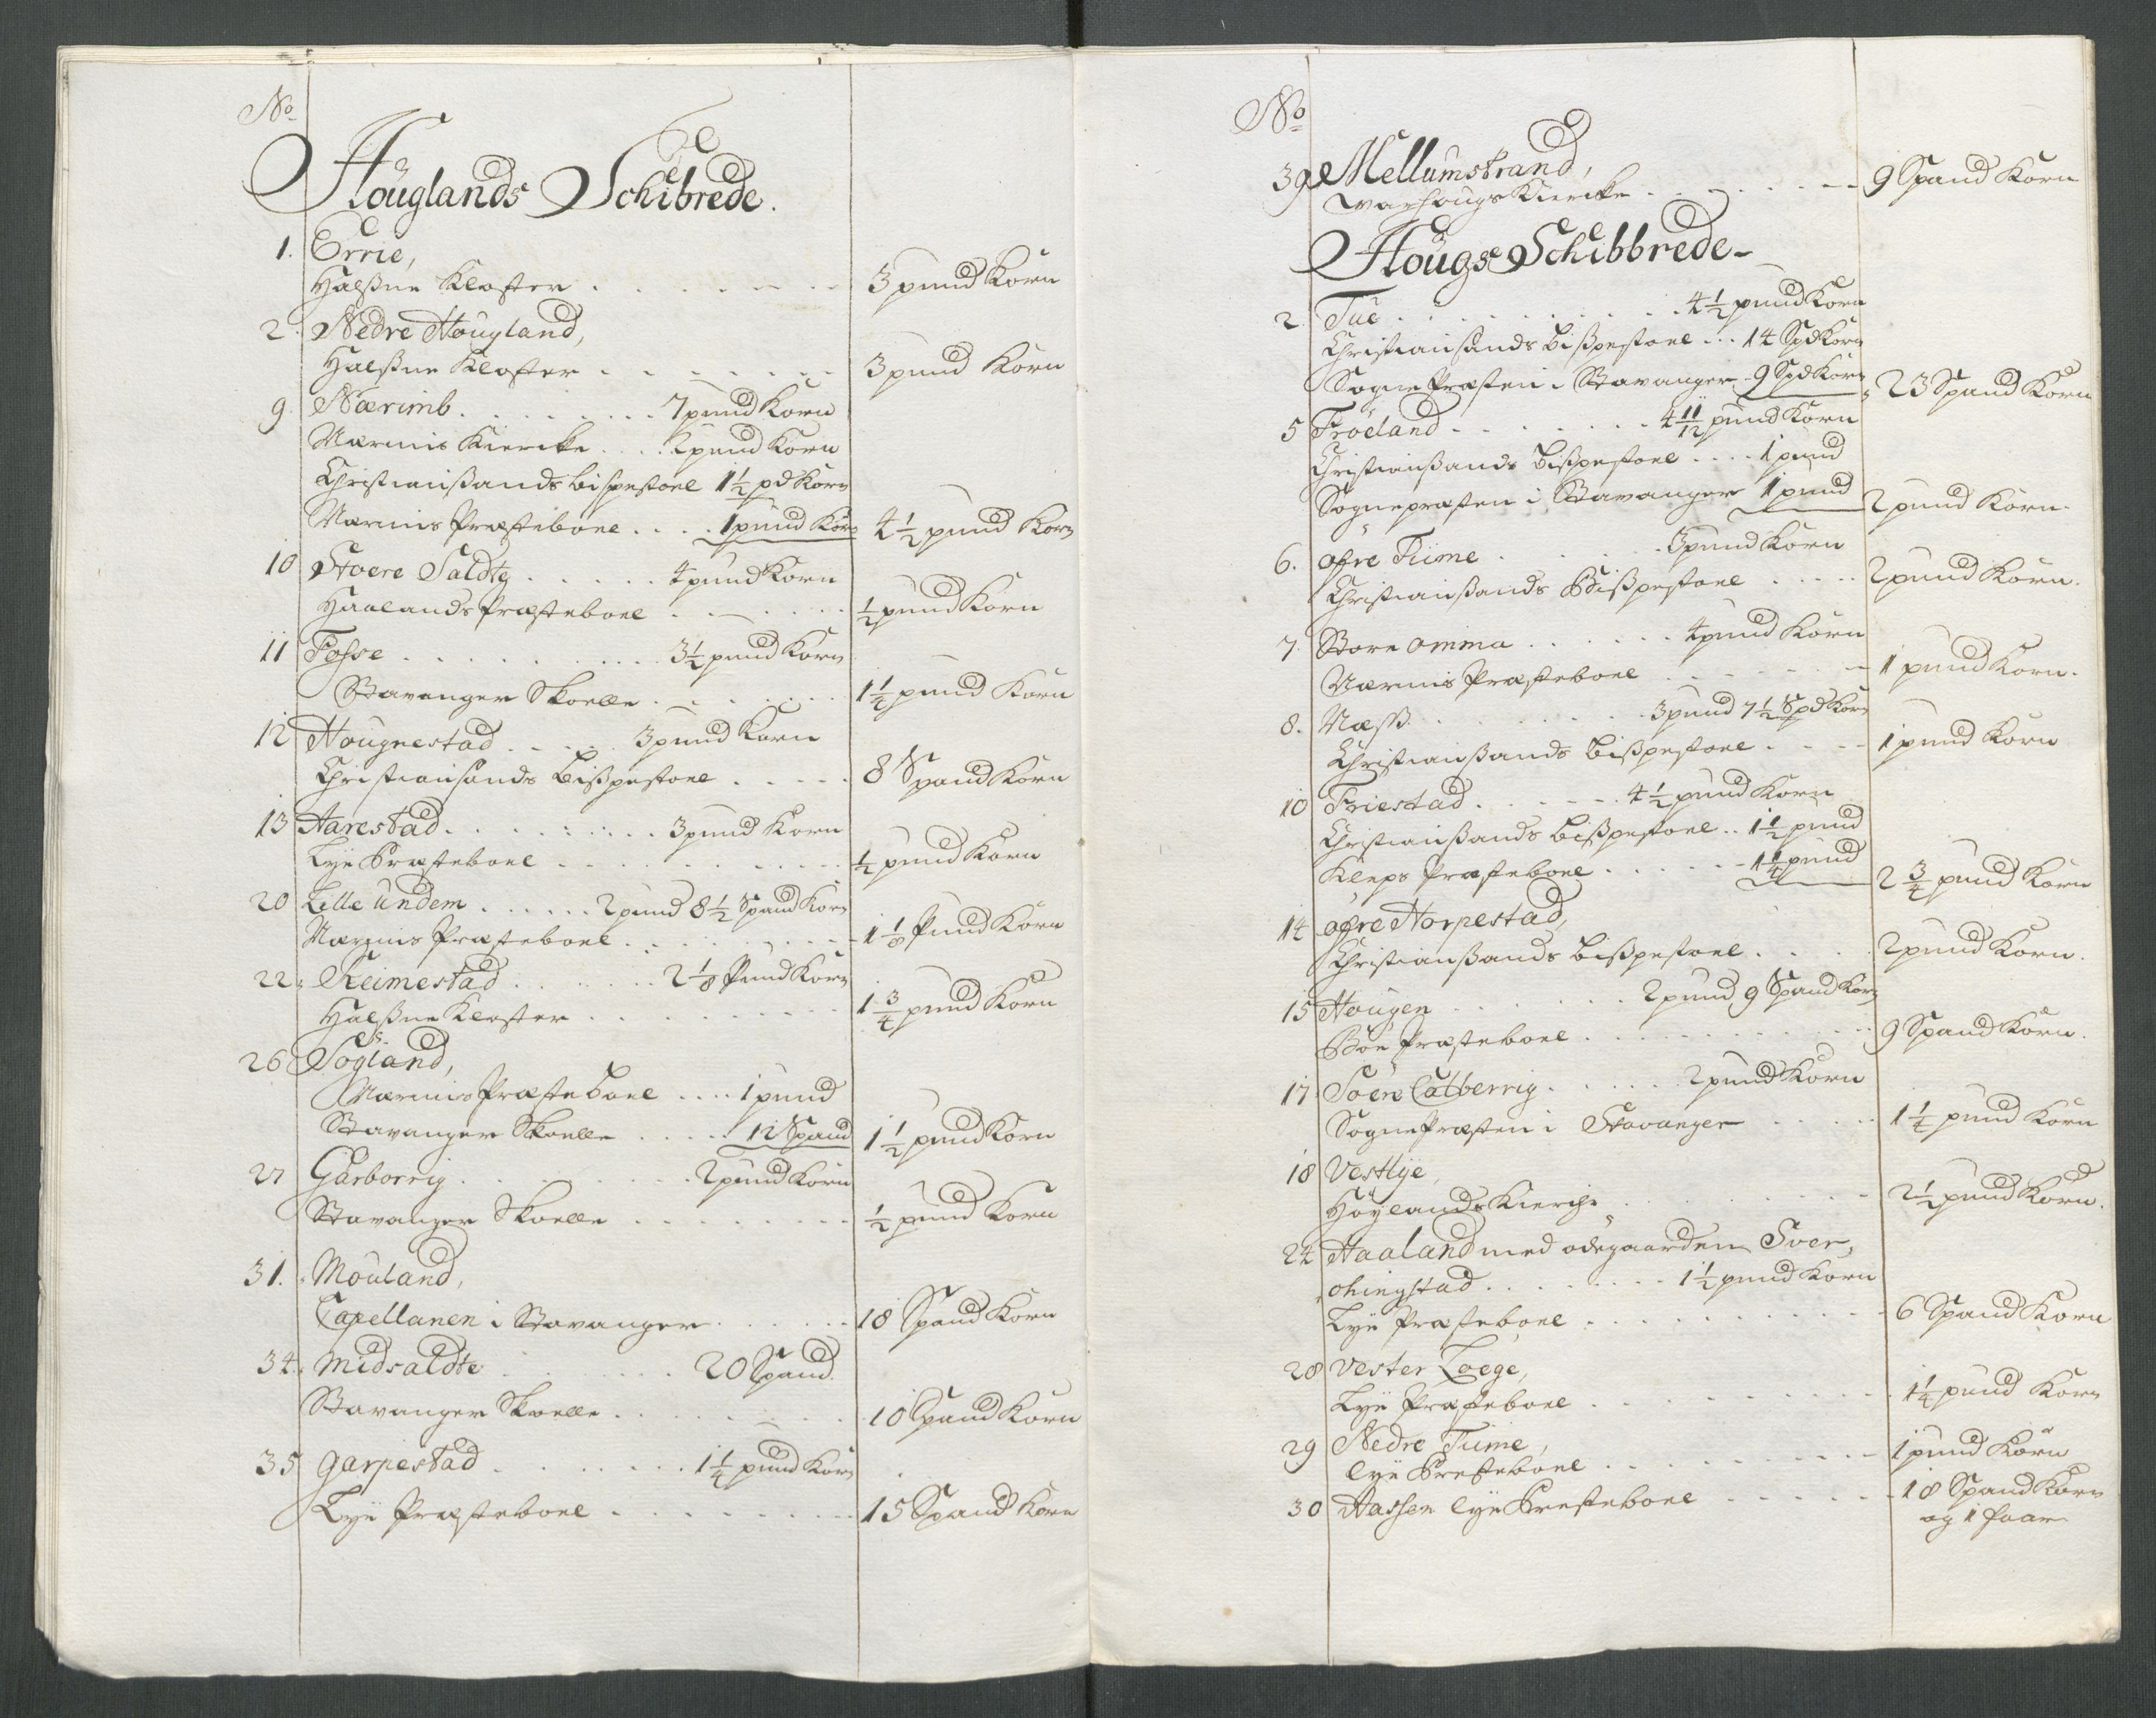 No
Höuglands Schibrede.
1. Errie,
Halßne Kloster . . . . . . 3 pund Korn
2. Nedre Hougland,
Halßne Kloster . . . . . . 3 pund Korn
9. Nærimb . . . . . . 7 pund Korn
Nærims Kiercke . . . . 2 pund Korn
Christianßands bispestoel 1½ pd Korn
Nærims Præsteboel . . . . 1 pund Korn 4½ pund Korn
10 Stoere Saldty . . . . . 4 pund Korn
Haalands Præsteboel . . . . . ½ pund Korn
11 Fosse . . . . . . . . 3½ pund Korn
Stavanger Skoelle . . . . . . 1¼ pund Korn
12 Hougnestad . . . . . 3 pund Korn
Christiansands bißpestoel . . . . . 8 Spand Korn
13 Aarestad . . . . . . . . 3 pund Korn
Lye Præsteboel . . . . . . . ½ pund Korn
20 Lille Undem . . . . . . 2 pund 8½ Spand Korn
Nærims Præsteboel . . . . . . . 1⅛ Pund Korn
22. Reimestad . . . . . . . 2⅛ Pund Korn
Halßne Kloster . . . . . . . . 1¾ pund Korn
26 Sögland,
Nærims Præsteboel . . . . 1 pund
Stavanger Skoelle . . . . . 12 Spand 1½ pund Korn
27 Garborrig . . . . . . . . 2 pund Korn
Stavanger Skoelle . . . . . . . . ½ pund Korn
31. Mouland,
Capellanen i Stavanger . . . . . . 18 Spand Korn
34. Midsaldte . . . . . . . 20 Spand.
Stavanger Skoelle . . . . . . . . 10 Spand Korn
35 Garpestad . . . . . . . 1¼ pund Korn
Lye Præsteboel . . . . . . . . . 15 Spand Korn
No
39 Mellumstrand,
Warhougs Kiercke . . . . . . . 9 Spand Korn
Hougs Schibbrede-
2. Tue . . . . . . . . . . 4½ pund Korn
Christiansands bißpestoel . . . 14 Spd Korn
Sogne Præsten i Stavanger 9 Spd Korn 23 Spand Korn
5 Fröeland . . . . . . . . 4 11/12 pund Korn
Christianßands bißpestoel . . . . 1 pund
Sognepræsten i Stavanger 1 pund 2 pund Korn.
6. øfre Tiime . . . . . . 3 pund Korn
Christianßands Bißpestoel . . . . . 2 pund Korn.
7. Store Omma . . . . . . 4 pund Korn
Nærims Præsteboel . . . . . . . 1 pund Korn.
8. Næss . . . . . . . . 3 pund 7½ Spd Korn
Christianßands bißpestoel . . . . 1 pund Korn
10 Friestad . . . . . . 4½ pund Korn
Christianßands bißpestoel . . 1½ pund
Kleps Præsteboel . . . . . . 1¼ pund 2¾ pund Korn
14 øfre Horpestad,
Christianßands bißpestoel . . . . 2 pund Korn.
15 Hougen . . . . . . . 2 pund 9 Spand Korn
Böe Præsteboel . . . . . . . . . 9 Spand Korn.
17. Soere Calberrig . . . . . . 2 pund Korn
Sogne Præsten i Stavanger . . . . . 1¼ pund Korn
18 Vestlye,
Höylands Kierche . . . . . . . 2½ pund Korn.
24 Haaland med ödegaarden Sver,
chingstad . . . . . . . . 1½ pund Korn
Lye Præsteboel . . . . . . . . . 6 Spand Korn
28 Vester Loege,
Lye Præsteboel . . . . . . . . . 1¼ pund Korn
29 Nedre Tiime,
lye Presteboel . . . . . . . . . 1 pund Korn
30 Aassen lye Presteboel . . . . . . 18 Spand Korn
og 1 faar